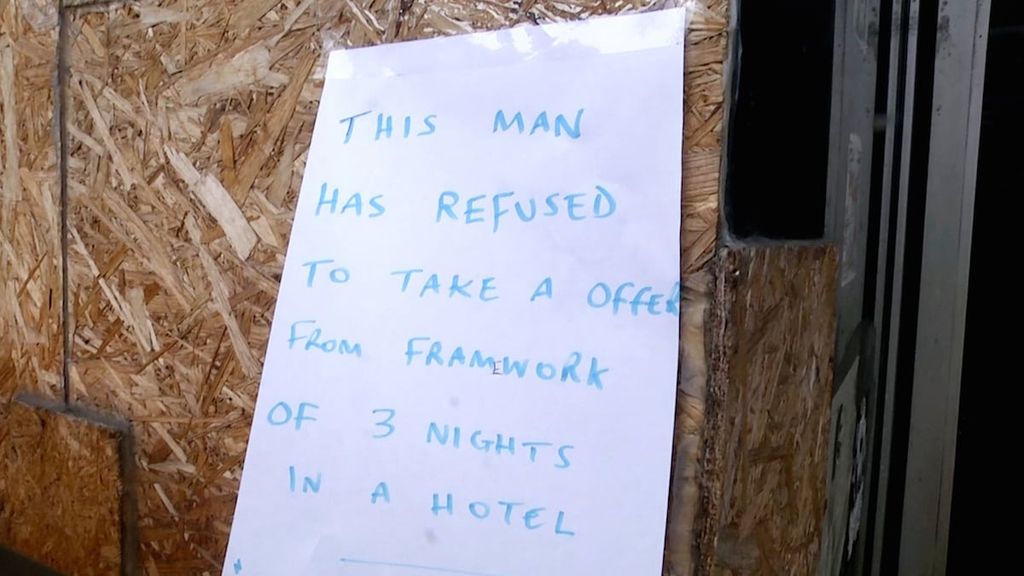 THIS MAN
HAS REFUSED
TO TAKE A OFFER
FROM FRAMEWORK
OF 3 NIGHTS
IN A HOTEL